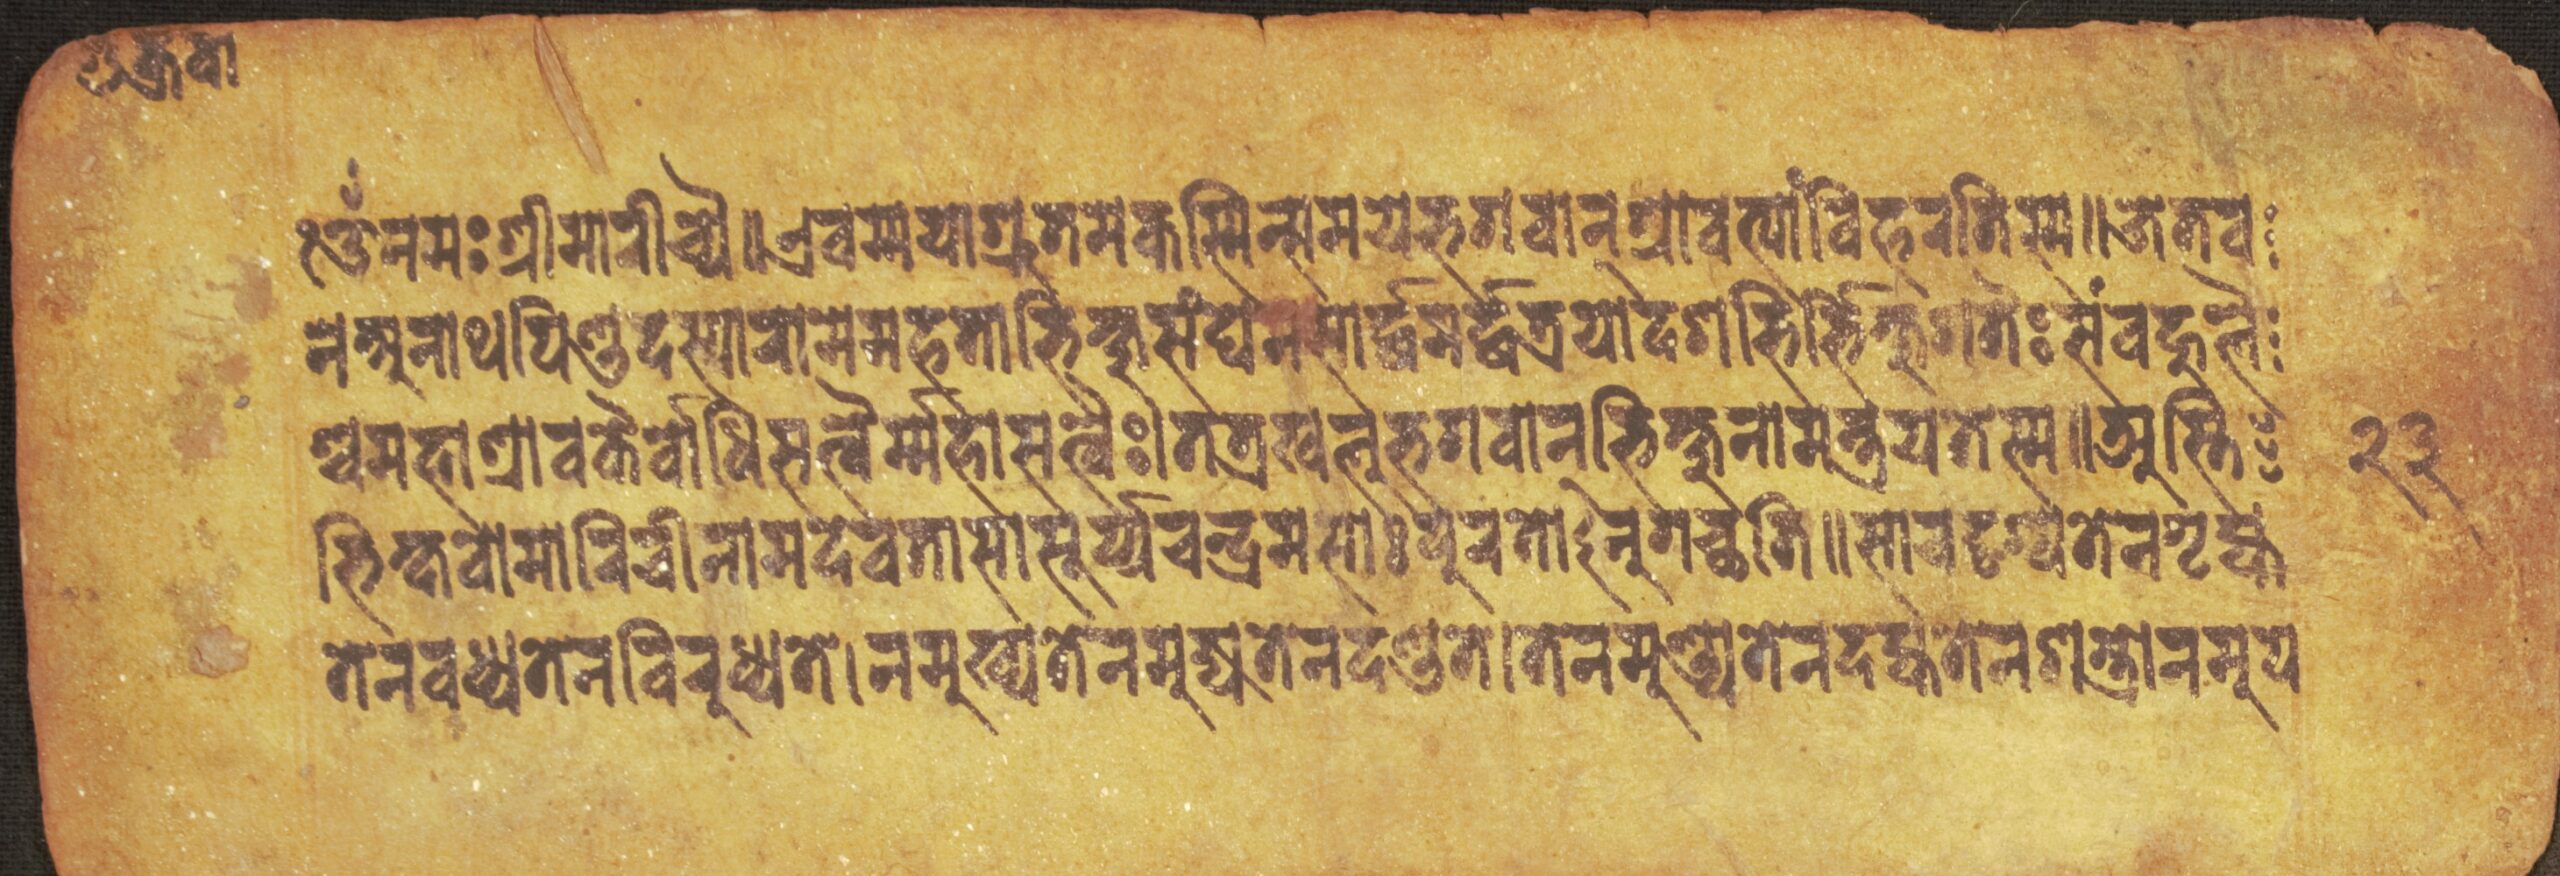 शुक्रवा
ॐ नमः श्रीमारीच्यै॥ एवम्मयाश्रुतमेकस्मिन्समये भगवान् श्रावत्यां विहरति स्म॥ जेतव
नेऽनाथपिण्डदस्यारामे महता भिक्षुसंघेन सार्द्धमर्द्धत्रयोदशभिर्भिक्षुशतैः संवहुलै
श्च महाश्रावकैर्वोधिसत्वैर्म्महासत्वैः। तत्र खलु भगवान भिक्षुनामन्त्रयते स्म॥ अस्ति
भिक्षवो मारिची नाम देवता सा सूर्य्यचन्द्रमसोः पुरतोऽनुगच्छति॥ सा च दृश्यते न गृह्य
ते न वध्यते न विरुध्यते। न मुष्यते न मुह्यते न दण्डते। ते न मुण्ड्यते न दह्यते न शत्रो न मूय
२३